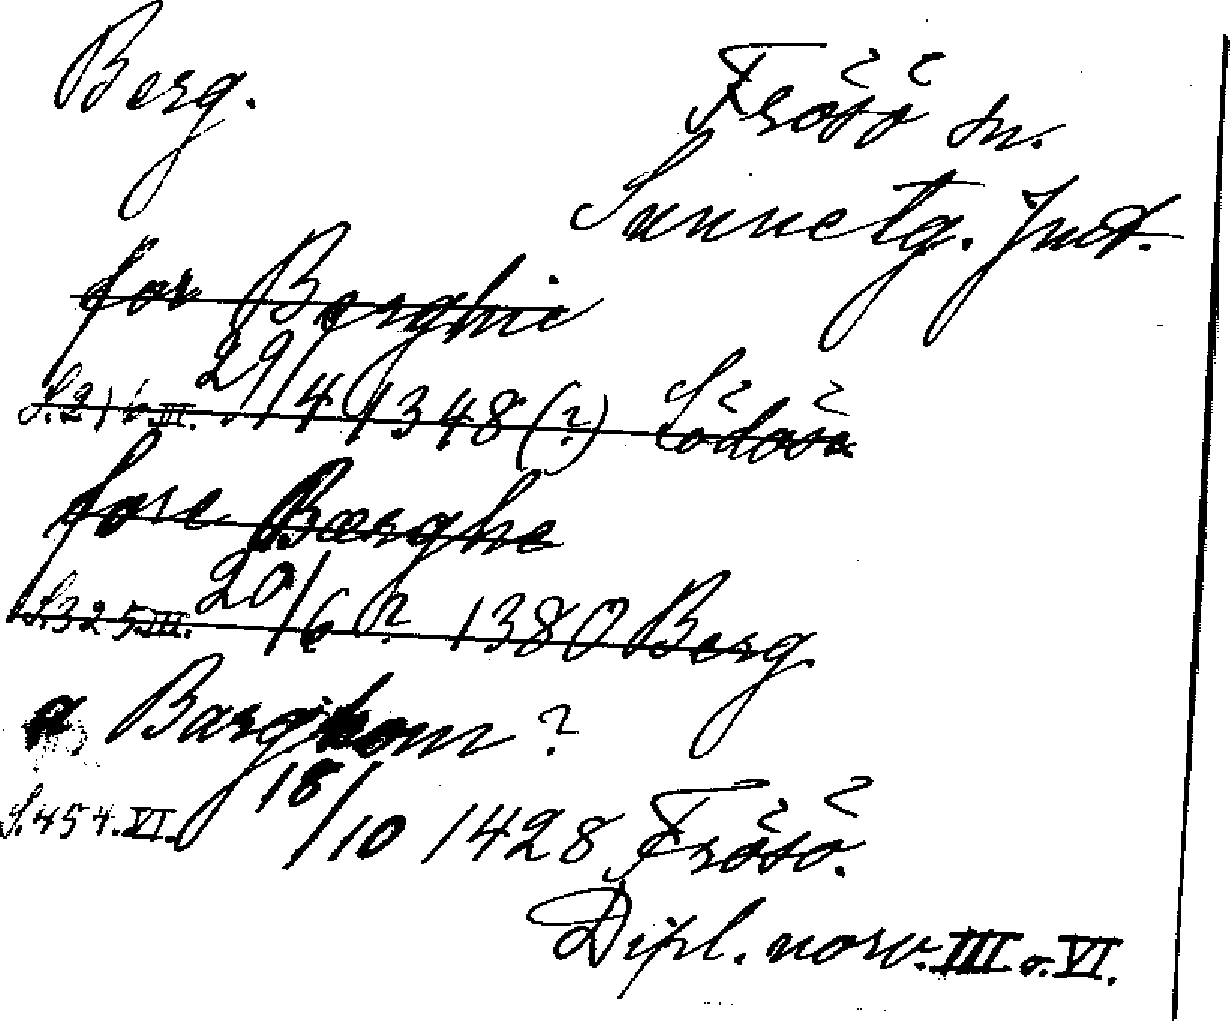 Berg.
Frösö sn.
Sunne tg. Jmtl.
for Berghie
S. 216 III. 29/4 1348 (?) Lödösa
fore Bærghe
S. 325 III. 20/6 ? 1380 Berg.
a Barghom ?
S. 454. VI. 18/10 1428 Frösö.
Dipl. norv. III o. VI.